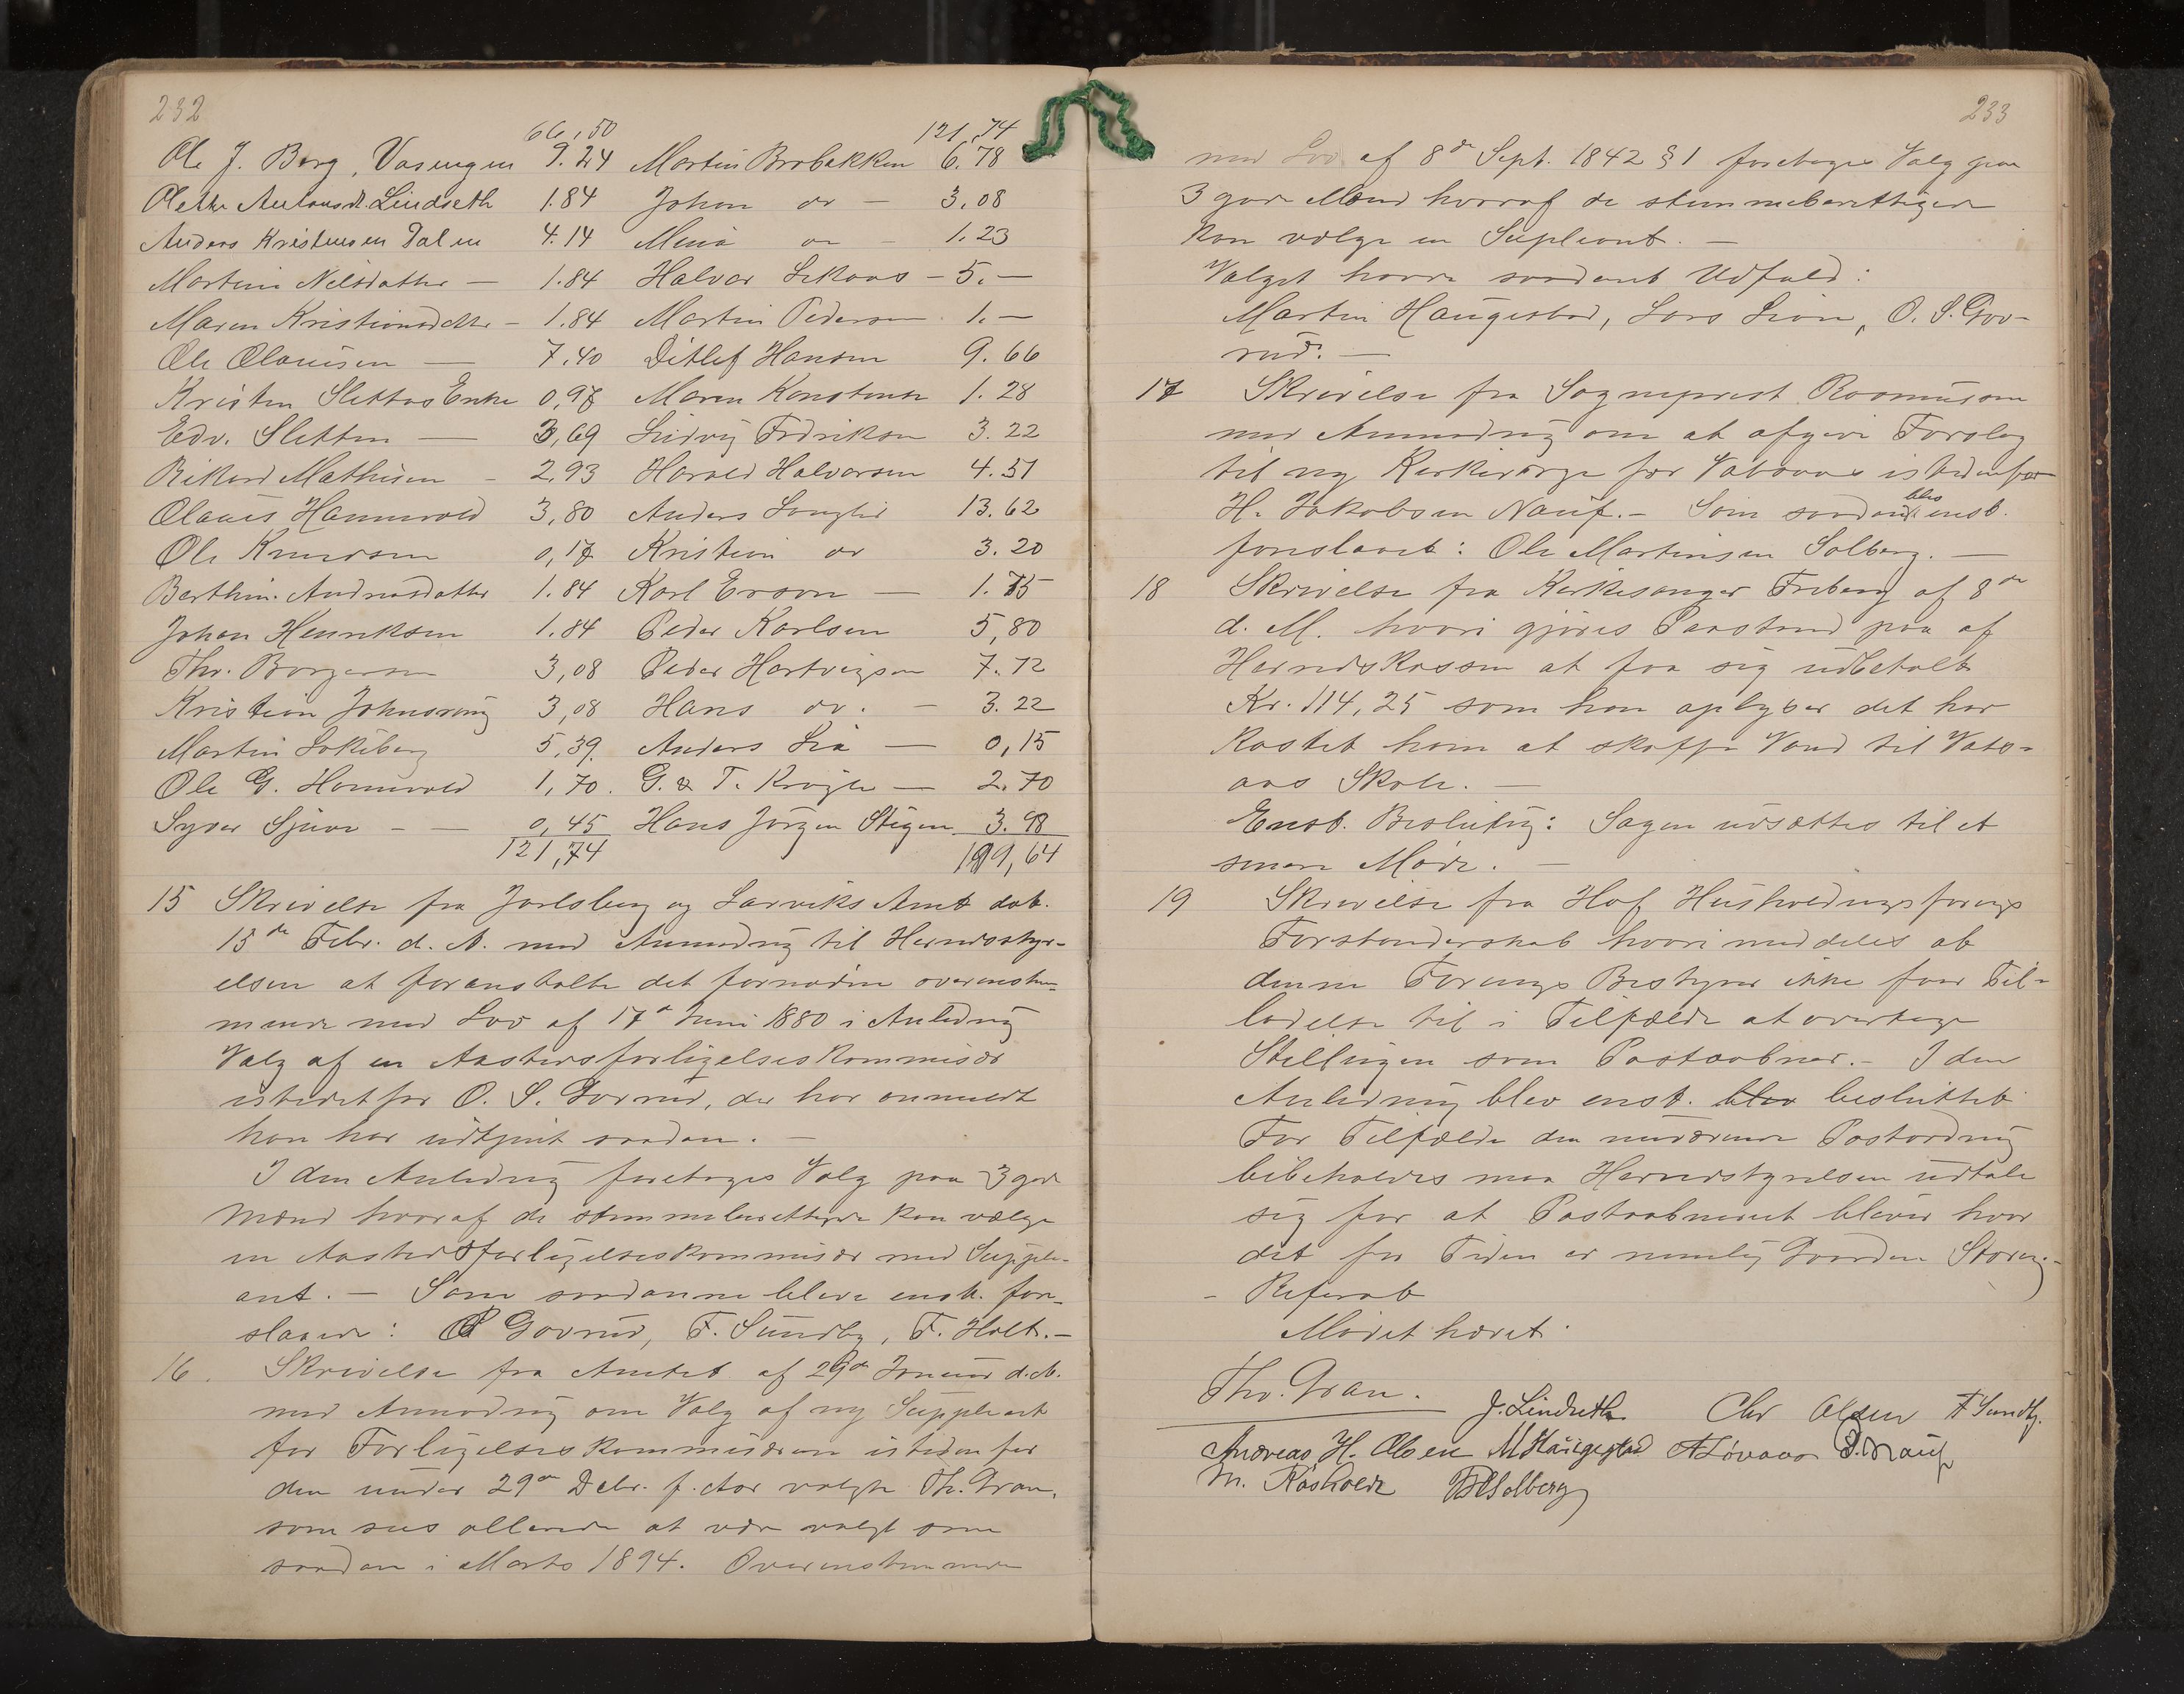 232
66,50 121,74
Ole J. Berg, Vasengen 9.24 Martin Brobakken 6.78
Olethe Antonsdt. Lindseth 1.84 Johan do — 3,08
Anders Kristensen Dalen 4.14 Mina do — 1.23
Martine Nilsdatter — 1.84 Halvor Lekaas — 5.—
Maren Kristiansdatter — 1.84 Martin Pedersen 1.—
Ole Olausen — 7.40 Ditlef Hansen 9.66
Kristen Slettas Enke 0,97 Maren Konstanse 1.28
Edv. Sletten — 3,69 Ludvig Fredriksen 3.22
Rikard Mathisen - 2,93 Harald Halvorsen 4.51
Olaus Hannevold 3,80 Anders Langlid 13.62
Ole Knudsen 0,17 Kristian do 3.20
Berthine Andreasdatter 1.84 Karl Erson — 1.75
Johan Henriksen 1.84 Peder Karlsen 5,80
Thv. Borgersen 3,08 Peder Hartvigsen 7.12
Kristian Johnsrønig 3,08 Hans do. — 3.22
Martin Lokeberg 5,39. Anders Lia — 0,15
Ole G. Hannevold 1,70. G. & T. Krogh — 2.70
Syver Sjue — — 0,45 Hans Jørgen Stigen 3.98
121,74 199,64
15 Skrivelse fra Jarlsberg og Larviks Amt dat.
15de Febr. d. A. med Anmodnig til Herredsstyr-
elsen at foranstalte det fornødne overenstem-
mende med Lov af 17de Juni 1880 i Anlednig
Valg af en Aastersforligelseskommisær
istedetfor O. S. Govrud, der har anmeldt
han har udtjent saadan. —
I den Anlednig foretoges Valg paa 3 gode
Mænd hvoraf de stemmeberettigede kan vælge
en Aastedsforligelseskommisær med Supple-
ant. — Som saadanne bleve enst. fore-
slaaede: OS Govrud, F. Sundby, F. Holt. —
16. Skrivelse fra Amtet af 29de Januar d. A.
med Anmodnig om Valg af ny Suppleant
for Forligelseskommisæren istedenfor
den under 29de Debr. f. Aar valgte Th. Gran,
som sees allerede at være valgt som
saadan i Marts 1894. Overenstemmende
233
med Lov af 8de Sept. 1842 § 1 foretoges Valg paa
3 gode Mænd hvoraf de stemmeberettigede
kan vælge en Supleant. —
Valget havde saadant Udfald:
Martin Haugestad, Lars Lian, O. S. Gov-
rud. —
17 Skrivelse fra Sogneprest Rasmussen
med Anmodnig om at afgive Forslag
til ny Kirkeværge for Vataas istedenfor
H. Jakobsen Nauf. — Som saadan blev enst.
foreslaaet: Ole Martinsen Solberg. —
18 Skrivelse fra Kirkesanger Freberg af 8de
d. M. hvori gjøres Paastand paa af
Herredskassen at faa sig udbetalt
Kr. 114,25 som han oplyser det har
kostet ham at skaffe Vand til Vata-
aas Skole. —
Enst. Beslutnig: Sagen udsættes til et
senere Møde. —
19 Skrivelse fra Hof Husholdnigsforenigs
Forstanderskab hvori meddeles at
denne Forenigs Bestyrer ikke faar Til-
ladelse til i Tilfælde at overtage
Stillingen som Postaabner. — I den
Anlednig blev enst. blev besluttet
For Tilfælde den nuværende Postordnig
bibeholdes maa Herredstyrelsen udtale
sig for at Postaabneriet bliver hvor
det for Tiden er nemlig Gaarden Støren.
- Referat
Mødet hævet.
Thv. Gran. J. Lindseth Chr Olsen F Sundby.
Andreas H. Olsen M Haugestad A Løvaas P. Nauf
M. Røsholdt Solberg